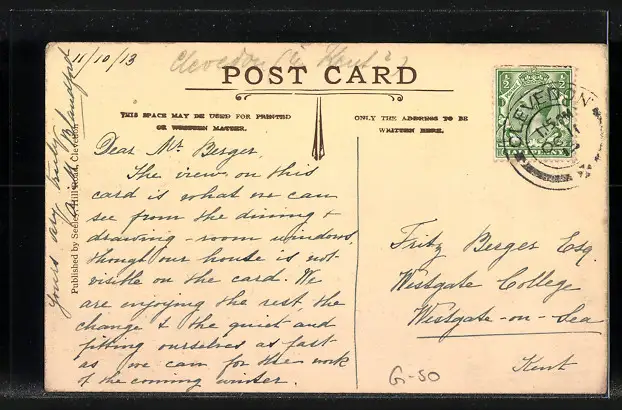 11/10/13
Clevedon
POST CARD
THIS SPACE MAY BE USED FOR PRINTED
OR WRITTEN MATTER.
ONLY THE ADDRESS TO BE
WRITTEN HERE.
½ ½
CLEVEDON
Dear Mr Berger,
The view on this
card is what we can
see from the dining &
drawing-room windows,
though our house is not
visible on the card. We
are enjoying the rest, the
change & the quiet and
fitting ourselves as fast
as we can for the work
of the coming winter.
Yours
Blandford
Published by Seeley, Hill Road, Clevedon
Fritz Berger Esq.
Westgate College
Westgate-on-Sea
Kent
G-50